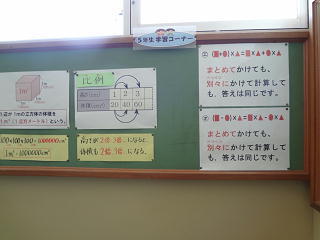 5年生学習コーナー
比例
1 2 3
20 40 60
高さが2倍、3倍になると
体積も2倍、3倍になる。
1m³
1辺が1mの立方体の体積を
1m³(1立方メートル)という。
100×100×100=1000000cm³
1m³=1000000cm³
(■+●)×▲=■×▲+●×▲
まとめてかけても、
別々にかけて計算して
も、答えは同じです。
(■-●)×▲=■×▲-●×▲
まとめてかけても、
別々にかけて計算して
も、答えは同じです。